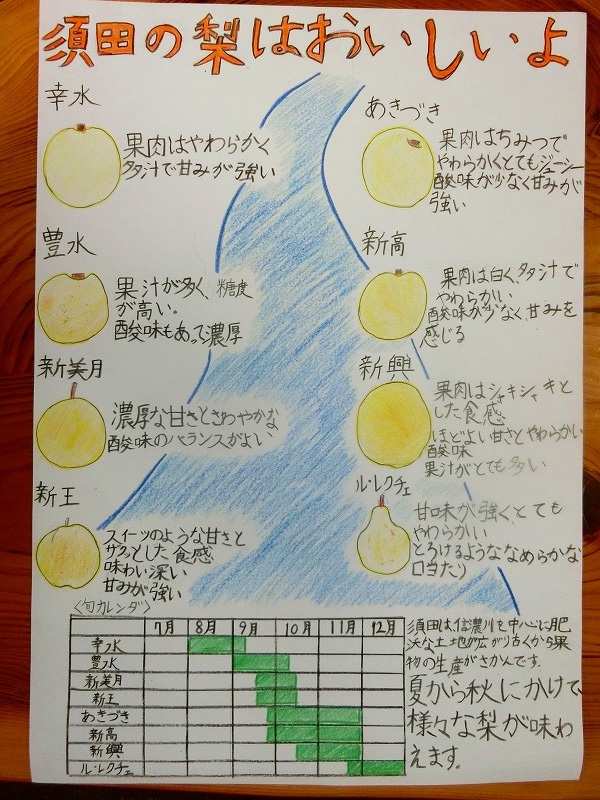 須田の梨はおいしいよ
幸水
果肉はやわらかく
多汁で甘みが強い
豊水
果汁が多く、糖度
が高い。
酸味もあって濃厚
新美月
濃厚な甘さとさわやかな
酸味のバランスがよい
新王
スイーツのような甘さと
サクッとした食感
味わい深い
甘みが強い
あきづき
果肉はちみつで
やわらかくとてもジューシー
酸味が少なく甘みが
強い
新高
果肉は白く、多汁で
やわらかい
酸味が少なく、甘みを
感じる
新興
果肉はシャキシャキと
した食感
ほどよい甘さとやわらかい
酸味
果汁がとても多い
ル・レクチェ
甘味が強く、とても
やわらかい
とろけるようななめらかな
口当たり
〈旬カレンダ〉
7月 8月 9月 10月 11月 12月
幸水
豊水
新美月
新王
あきづき
新高
新興
ル・レクチェ
須田は信濃川を中心に肥
沃な土地が広がり古くから果
物の生産がさかんです。
夏から秋にかけて、
様々な梨が味わ
えます。